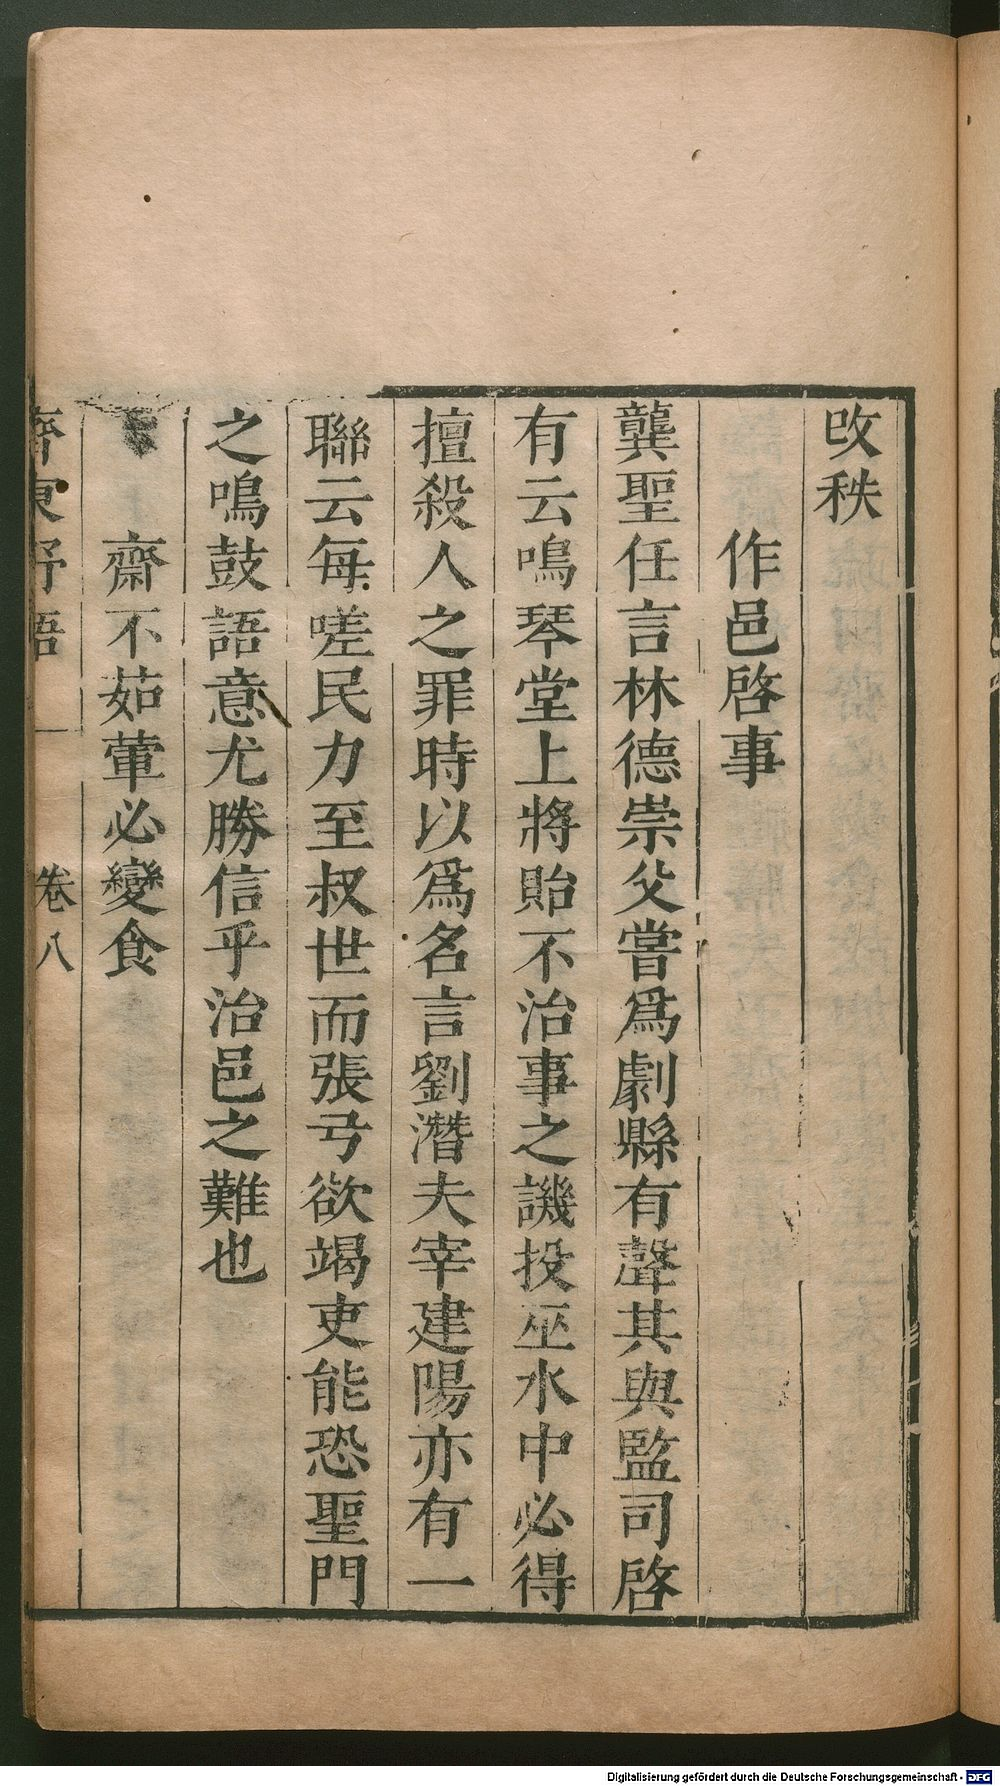 改秩
作邑啓事
龔聖任言林德崇父嘗爲劇縣有聲其與監司啓
有云鳴琴堂上將貽不治事之譏投巫水中必得
擅殺人之罪時以爲名言劉潛夫宰建陽亦有一
聯云每嗟民力至叔世而張弓欲竭吏能恐聖門
之鳴鼓語意尤勝信乎治邑之難也
齋不茹葷必變食
齊東野語 卷八
Digitalisierung gefördert durch die Deutsche Forschungsgemeinschaft - DFG